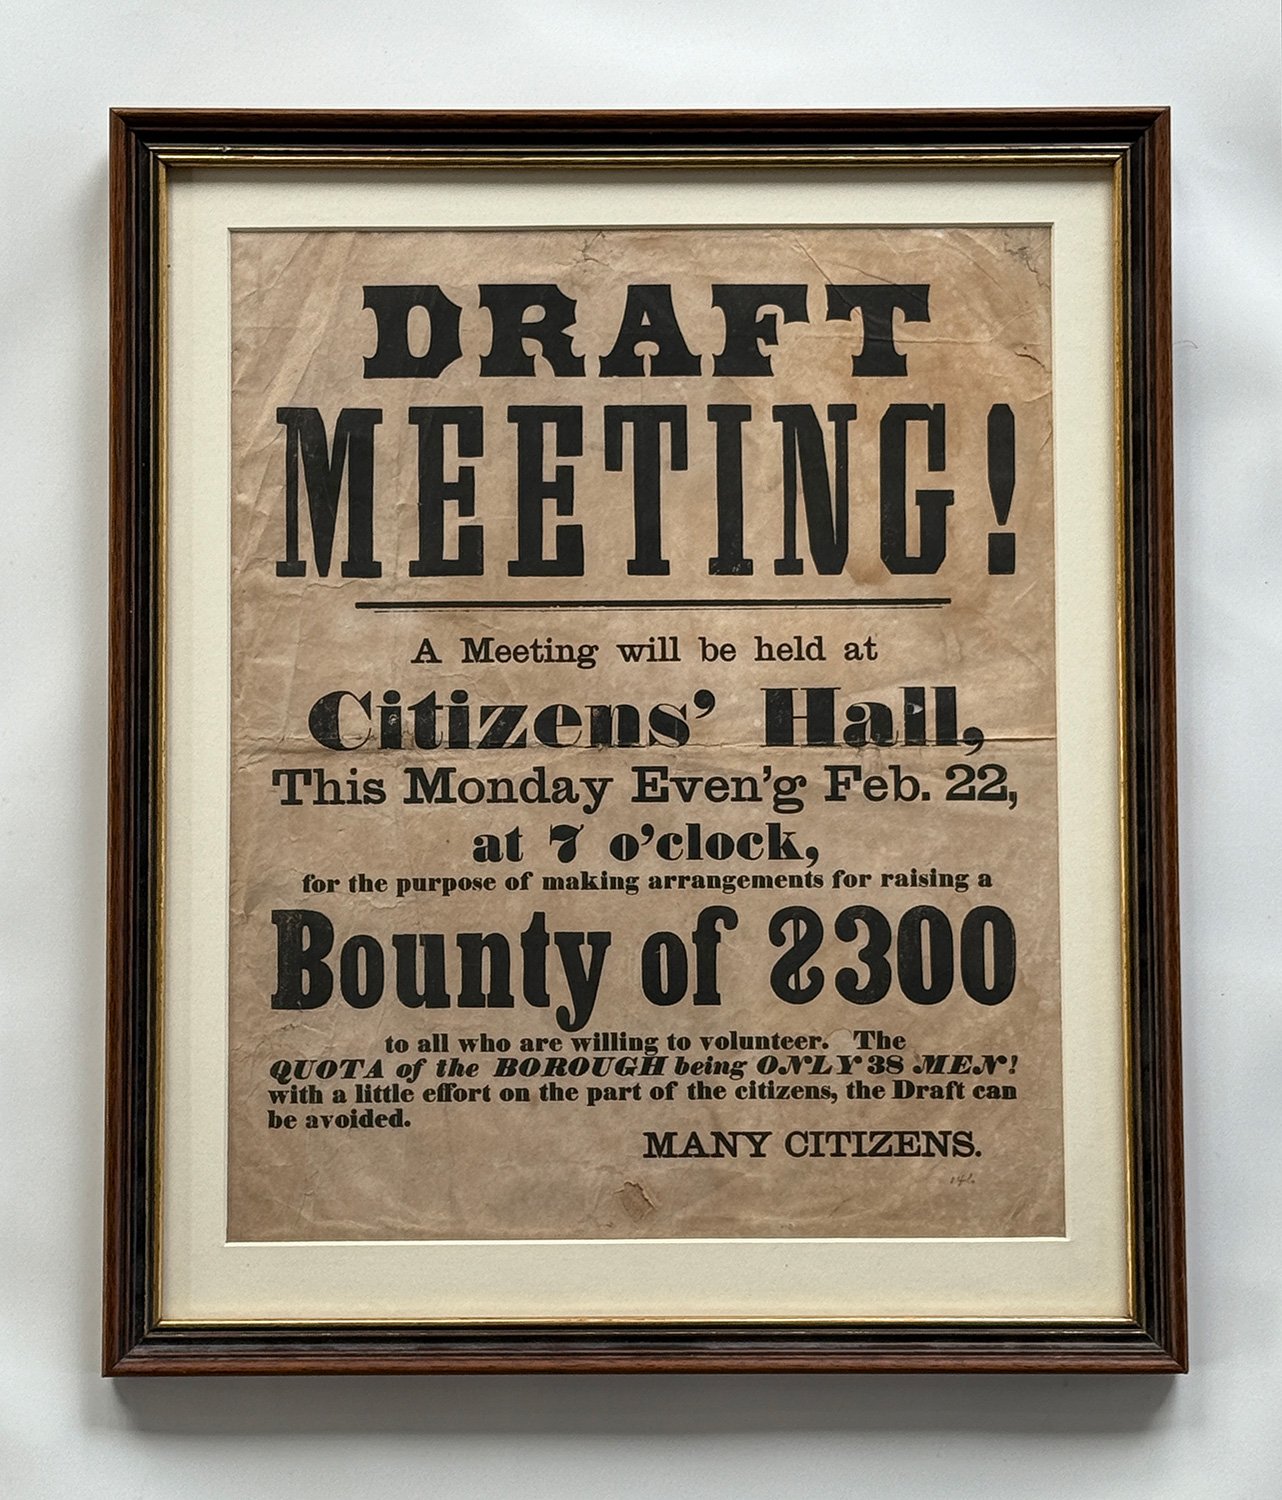 DRAFT
MEETING!
A Meeting will be held at
Citizens' Hall,
This Monday Even'g Feb. 22,
at 7 o'clock,
for the purpose of making arrangements for raising a
Bounty of $300
to all who are willing to volunteer. The
QUOTA of the BOROUGH being ONLY 38 MEN!
with a little effort on the part of the citizens, the Draft can
be avoided.
MANY CITIZENS.